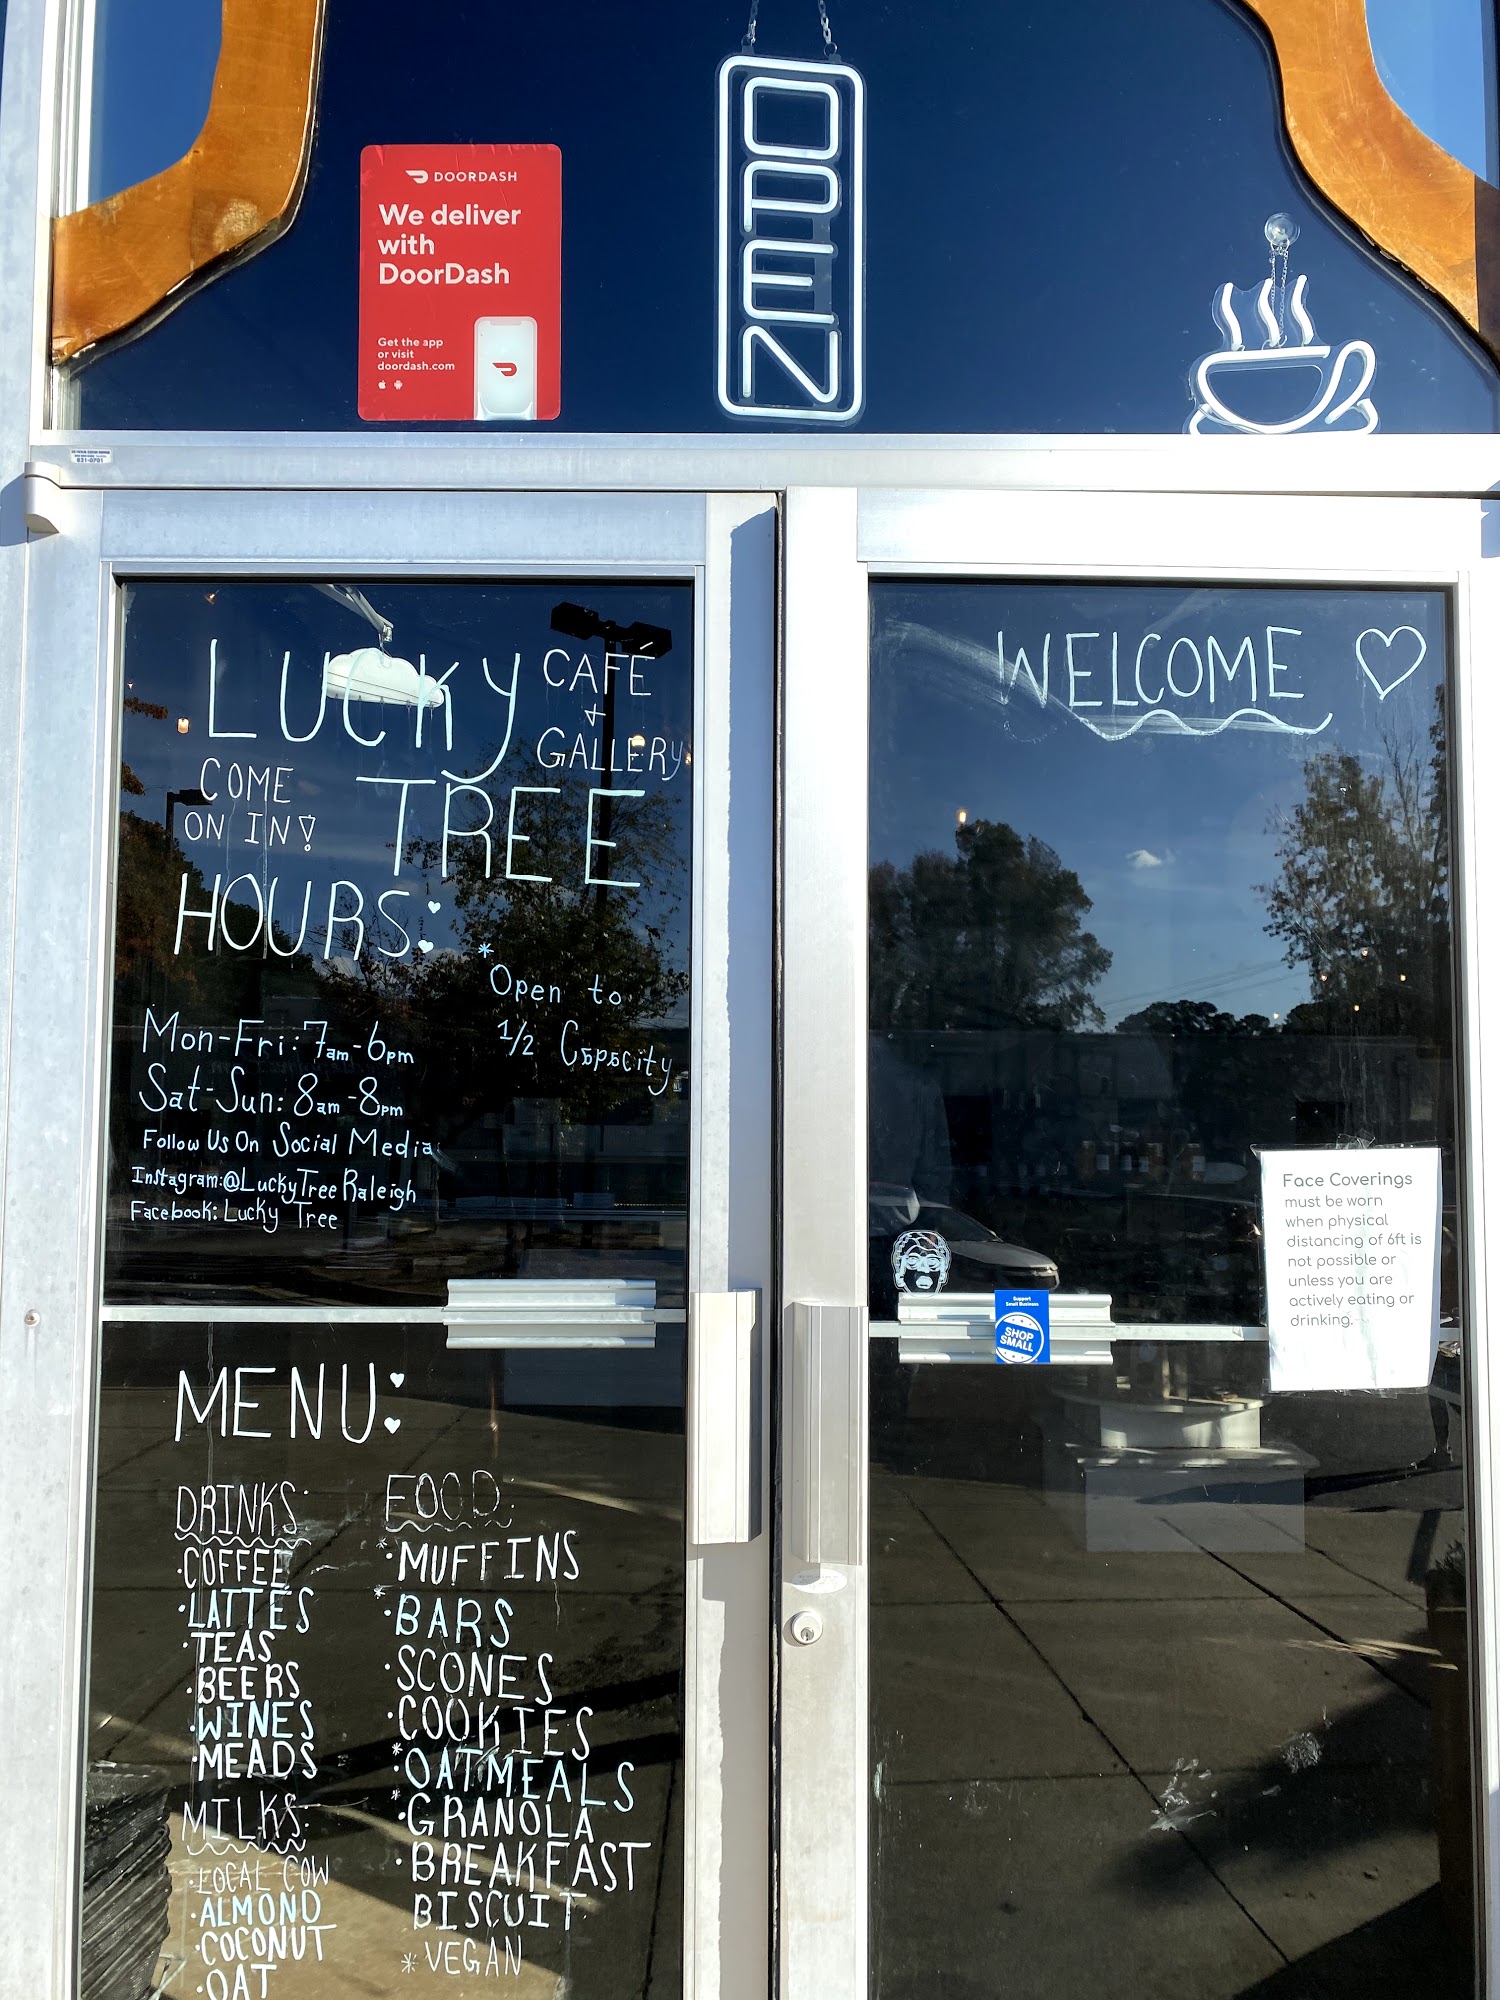 DOORDASH
We deliver
with
DoorDash
Get the app
or visit
doordash.com
OPEN
831-0701
LUCKY
CAFE
+
GALLERY
COME
ON IN!
TREE
HOURS:
*Open to
1/2 Capacity
Mon-Fri: 7am-6pm
Sat-Sun: 8am-8pm
Follow Us On Social Media:
Instagram:@LuckyTreeRaleigh
Facebook: Lucky Tree
WELCOME ♡
Face Coverings
must be worn
when physical
distancing of 6ft is
not possible or
unless you are
actively eating or
drinking.
Support
Small Business
SHOP
SMALL
MENU:
DRINKS:
·COFFEE
·LATTES
·TEAS
·BEERS
·WINES
·MEADS
MILKS:
·LOCAL COW
·ALMOND
·COCONUT
·OAT
FOOD:
*·MUFFINS
*·BARS
·SCONES
·COOKIES
*·OATMEALS
*·GRANOLA
·BREAKFAST
BISCUIT
*VEGAN